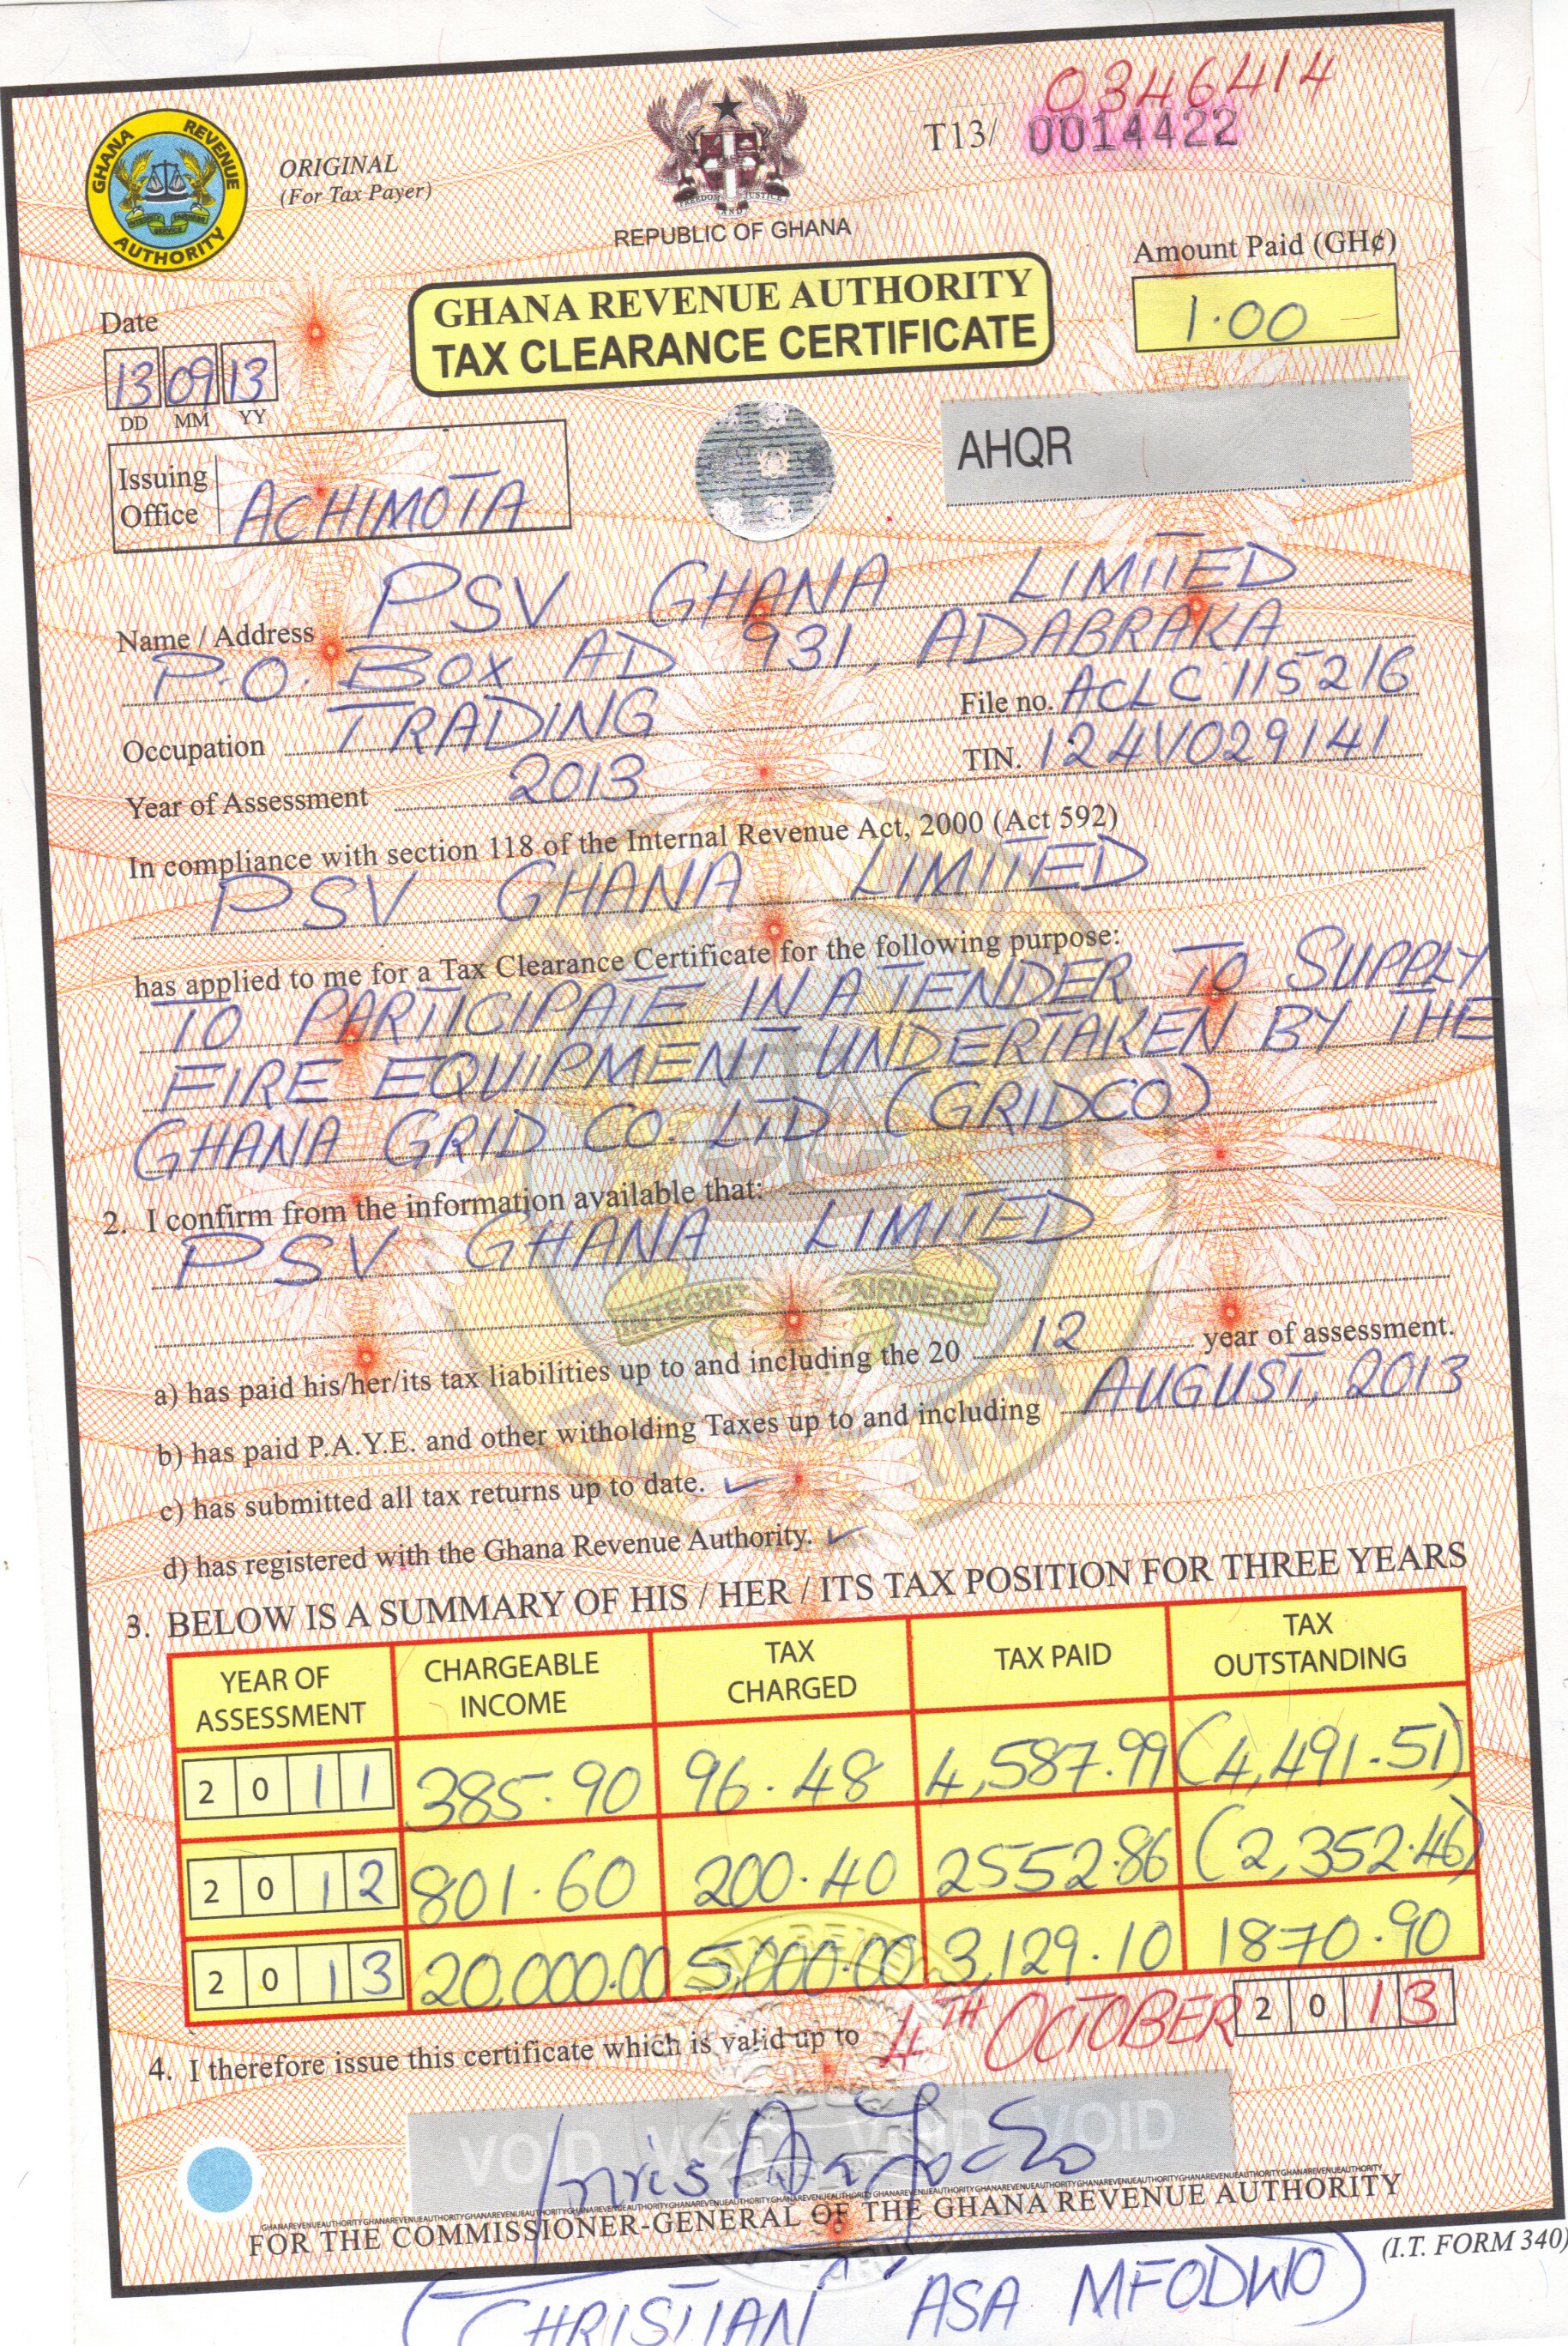 0346414
T13/ 0014422
GHANA REVENUE AUTHORITY
INTEGRITY FAIRNESS
SERVICE
ORIGINAL
(For Tax Payer)
FREEDOM AND JUSTICE
REPUBLIC OF GHANA
Amount Paid (GH¢)
1.00
GHANA REVENUE AUTHORITY
TAX CLEARANCE CERTIFICATE
Date
13 09 13
DD MM YY
AHQR
Issuing Office ACHIMOTA
Name / Address PSV GHANA LIMITED
P.O. BOX AD 931, ADABRAKA
Occupation TRADING File no. ACLC 115216
Year of Assessment 2013 TIN. 124V029141
In compliance with section 118 of the Internal Revenue Act, 2000 (Act 592)
PSV GHANA LIMITED
has applied to me for a Tax Clearance Certificate for the following purpose:
TO PARTICIPATE IN A TENDER TO SUPPLY
FIRE EQUIPMENT UNDERTAKEN BY THE
GHANA GRID CO. LTD (GRIDCO)
2. I confirm from the information available that:
PSV GHANA LIMITED
a) has paid his/her/its tax liabilities up to and including the 20 12 year of assessment.
b) has paid P.A.Y.E. and other witholding Taxes up to and including AUGUST, 2013
c) has submitted all tax returns up to date. ✓
d) has registered with the Ghana Revenue Authority. ✓
3. BELOW IS A SUMMARY OF HIS / HER / ITS TAX POSITION FOR THREE YEARS
YEAR OF ASSESSMENT CHARGEABLE INCOME TAX CHARGED TAX PAID TAX OUTSTANDING
2011 385.90 96.48 4,587.99 (4,491.51)
2012 801.60 200.40 2552.86 (2,352.46)
2013 20,000.00 5,000.00 3,129.10 1870.90
4. I therefore issue this certificate which is valid up to 4TH OCTOBER 2013
VOID VOID VOID VOID
FOR THE COMMISSIONER-GENERAL OF THE GHANA REVENUE AUTHORITY
(I.T. FORM 340)
(CHRISTIAN ASA MFODWO)